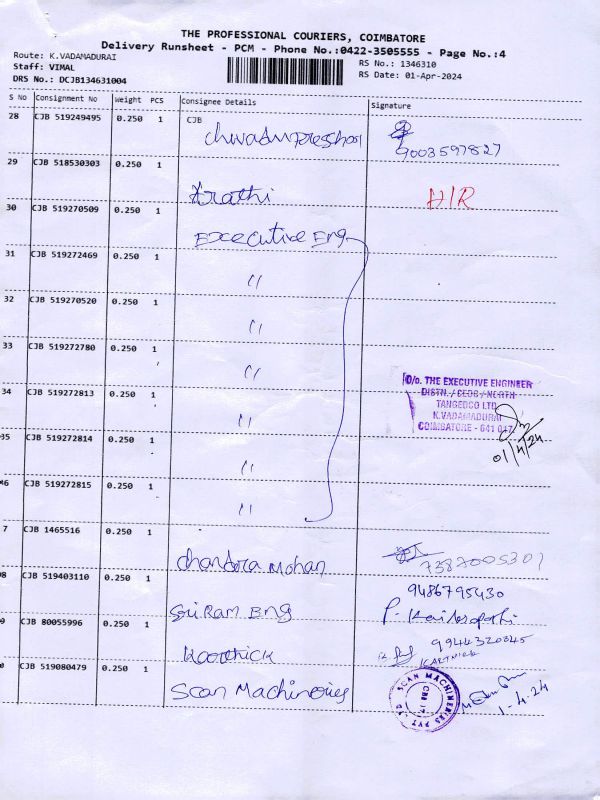 THE PROFESSIONAL COURIERS, COIMBATORE
Delivery Runsheet - PCM - Phone No.:0422-3505555 - Page No.:4
Route: K.VADAMADURAI
Staff: VIMAL
DRS No.: DCJB134631004
RS No.: 1346310
RS Date: 01-Apr-2024
S No Consignment No Weight PCS Consignee Details Signature
28 CJB 519249495 0.250 1 CJB
9003597827
29 CJB 518530303 0.250 1
Arathi
D/R
30 CJB 519270509 0.250 1
Executive Eng
31 CJB 519272469 0.250 1
"
32 CJB 519270520 0.250 1
"
33 CJB 519272780 0.250 1
"
O/o. THE EXECUTIVE ENGINEER
DISTN./CEDC/NORTH
TANGEDCO LTD
K.VADAMADURAI
COIMBATORE - 641 017
01/4/24
34 CJB 519272813 0.250 1
"
35 CJB 519272814 0.250 1
"
46 CJB 519272815 0.250 1
"
7 CJB 1465516 0.250 1
Chandra Mohan
7387005301
8 CJB 519403110 0.250 1
9486795430
Sri Ram Eng
9 CJB 80055996 0.250 1
9944320845
Karthick
KARTHICK
0 CJB 519080479 0.250 1
Scan Machineries
SCAN MACHINERIES PVT LTD
1-4-24